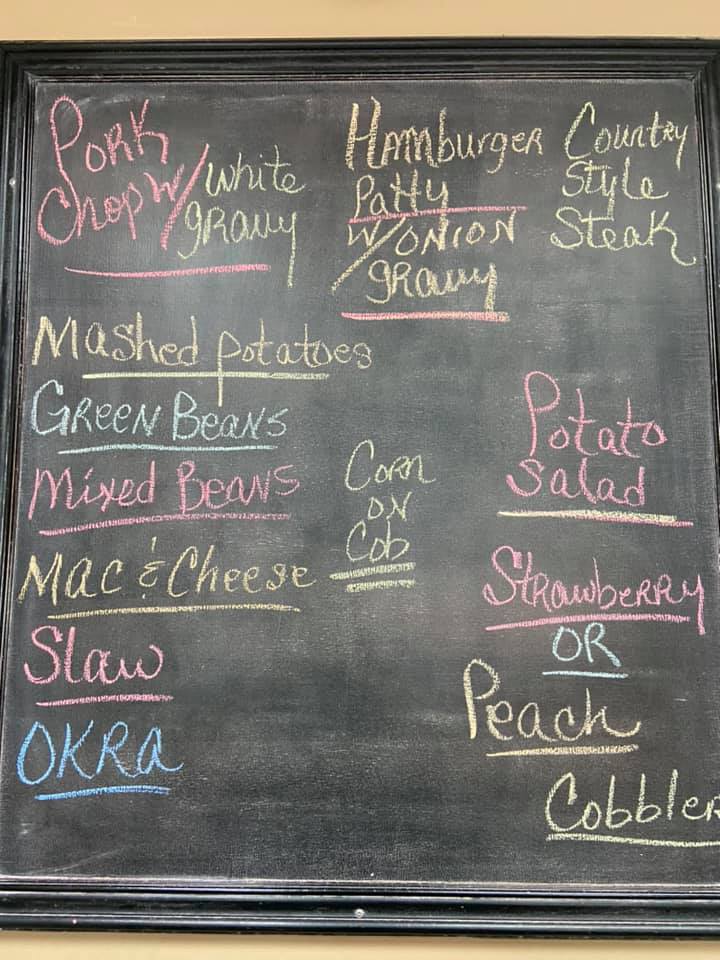 Pork
Chop w/ white
gravy
Hamburger
Patty
w/ onion
gravy
Country
Style
Steak
Mashed potatoes
Green Beans
Mixed Beans
Mac & Cheese
Slaw
OKRA
Corn
on
Cob
Potato
salad
Strawberry
OR
Peach
Cobbler